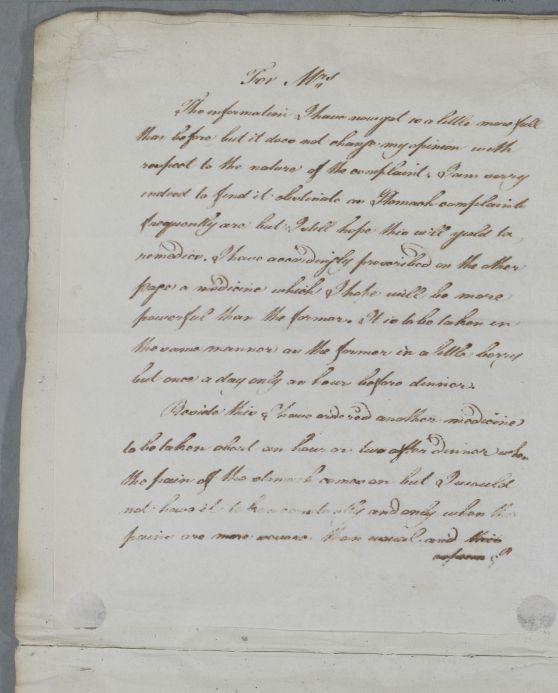 For Mrs
The information I have now got is a little more full
than before but it does not change my opinion with
respect to the nature of the complaint. I am sorry
indeed to find it obstinate as Stomach complaints
frequently are but I still hope this will yield to
remedies. I have accordingly prescribed on the other
page a medicine which I hope will be more
powerful than the former. It is to be taken in
the same manner as the former in a little berry
but once a day only an hour before dinner.
Beside this I have ordered another medicine
to be taken about an hour or two after dinner when
the pain of the stomach comes on but I would
not have it taken constantly and only when the
pains are more severe than usual and this